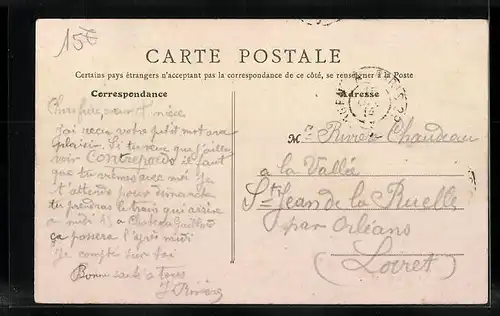 15E
CARTE POSTALE
Certains pays étrangers n'acceptant pas la correspondance de ce côté, se renseigner à la Poste
Correspondance
Adresse
Chers frère, sœur et nièce
J'ai reçu votre petit mot avec
plaisir. Si tu veux que j'aille
voir CONTREPOIDS il faut
que tu viennes avec moi je
t'attends pour dimanche
tu prendras le train qui arrive
a midi 45 a Chateau Gaillard
ça passera l'après midi
Je compte sur toi
Bonne santé a tous
J. Rivière
M. Rivière Chaudeau
a la Vallée
St Jean de la Ruelle
par Orléans
(Loiret)